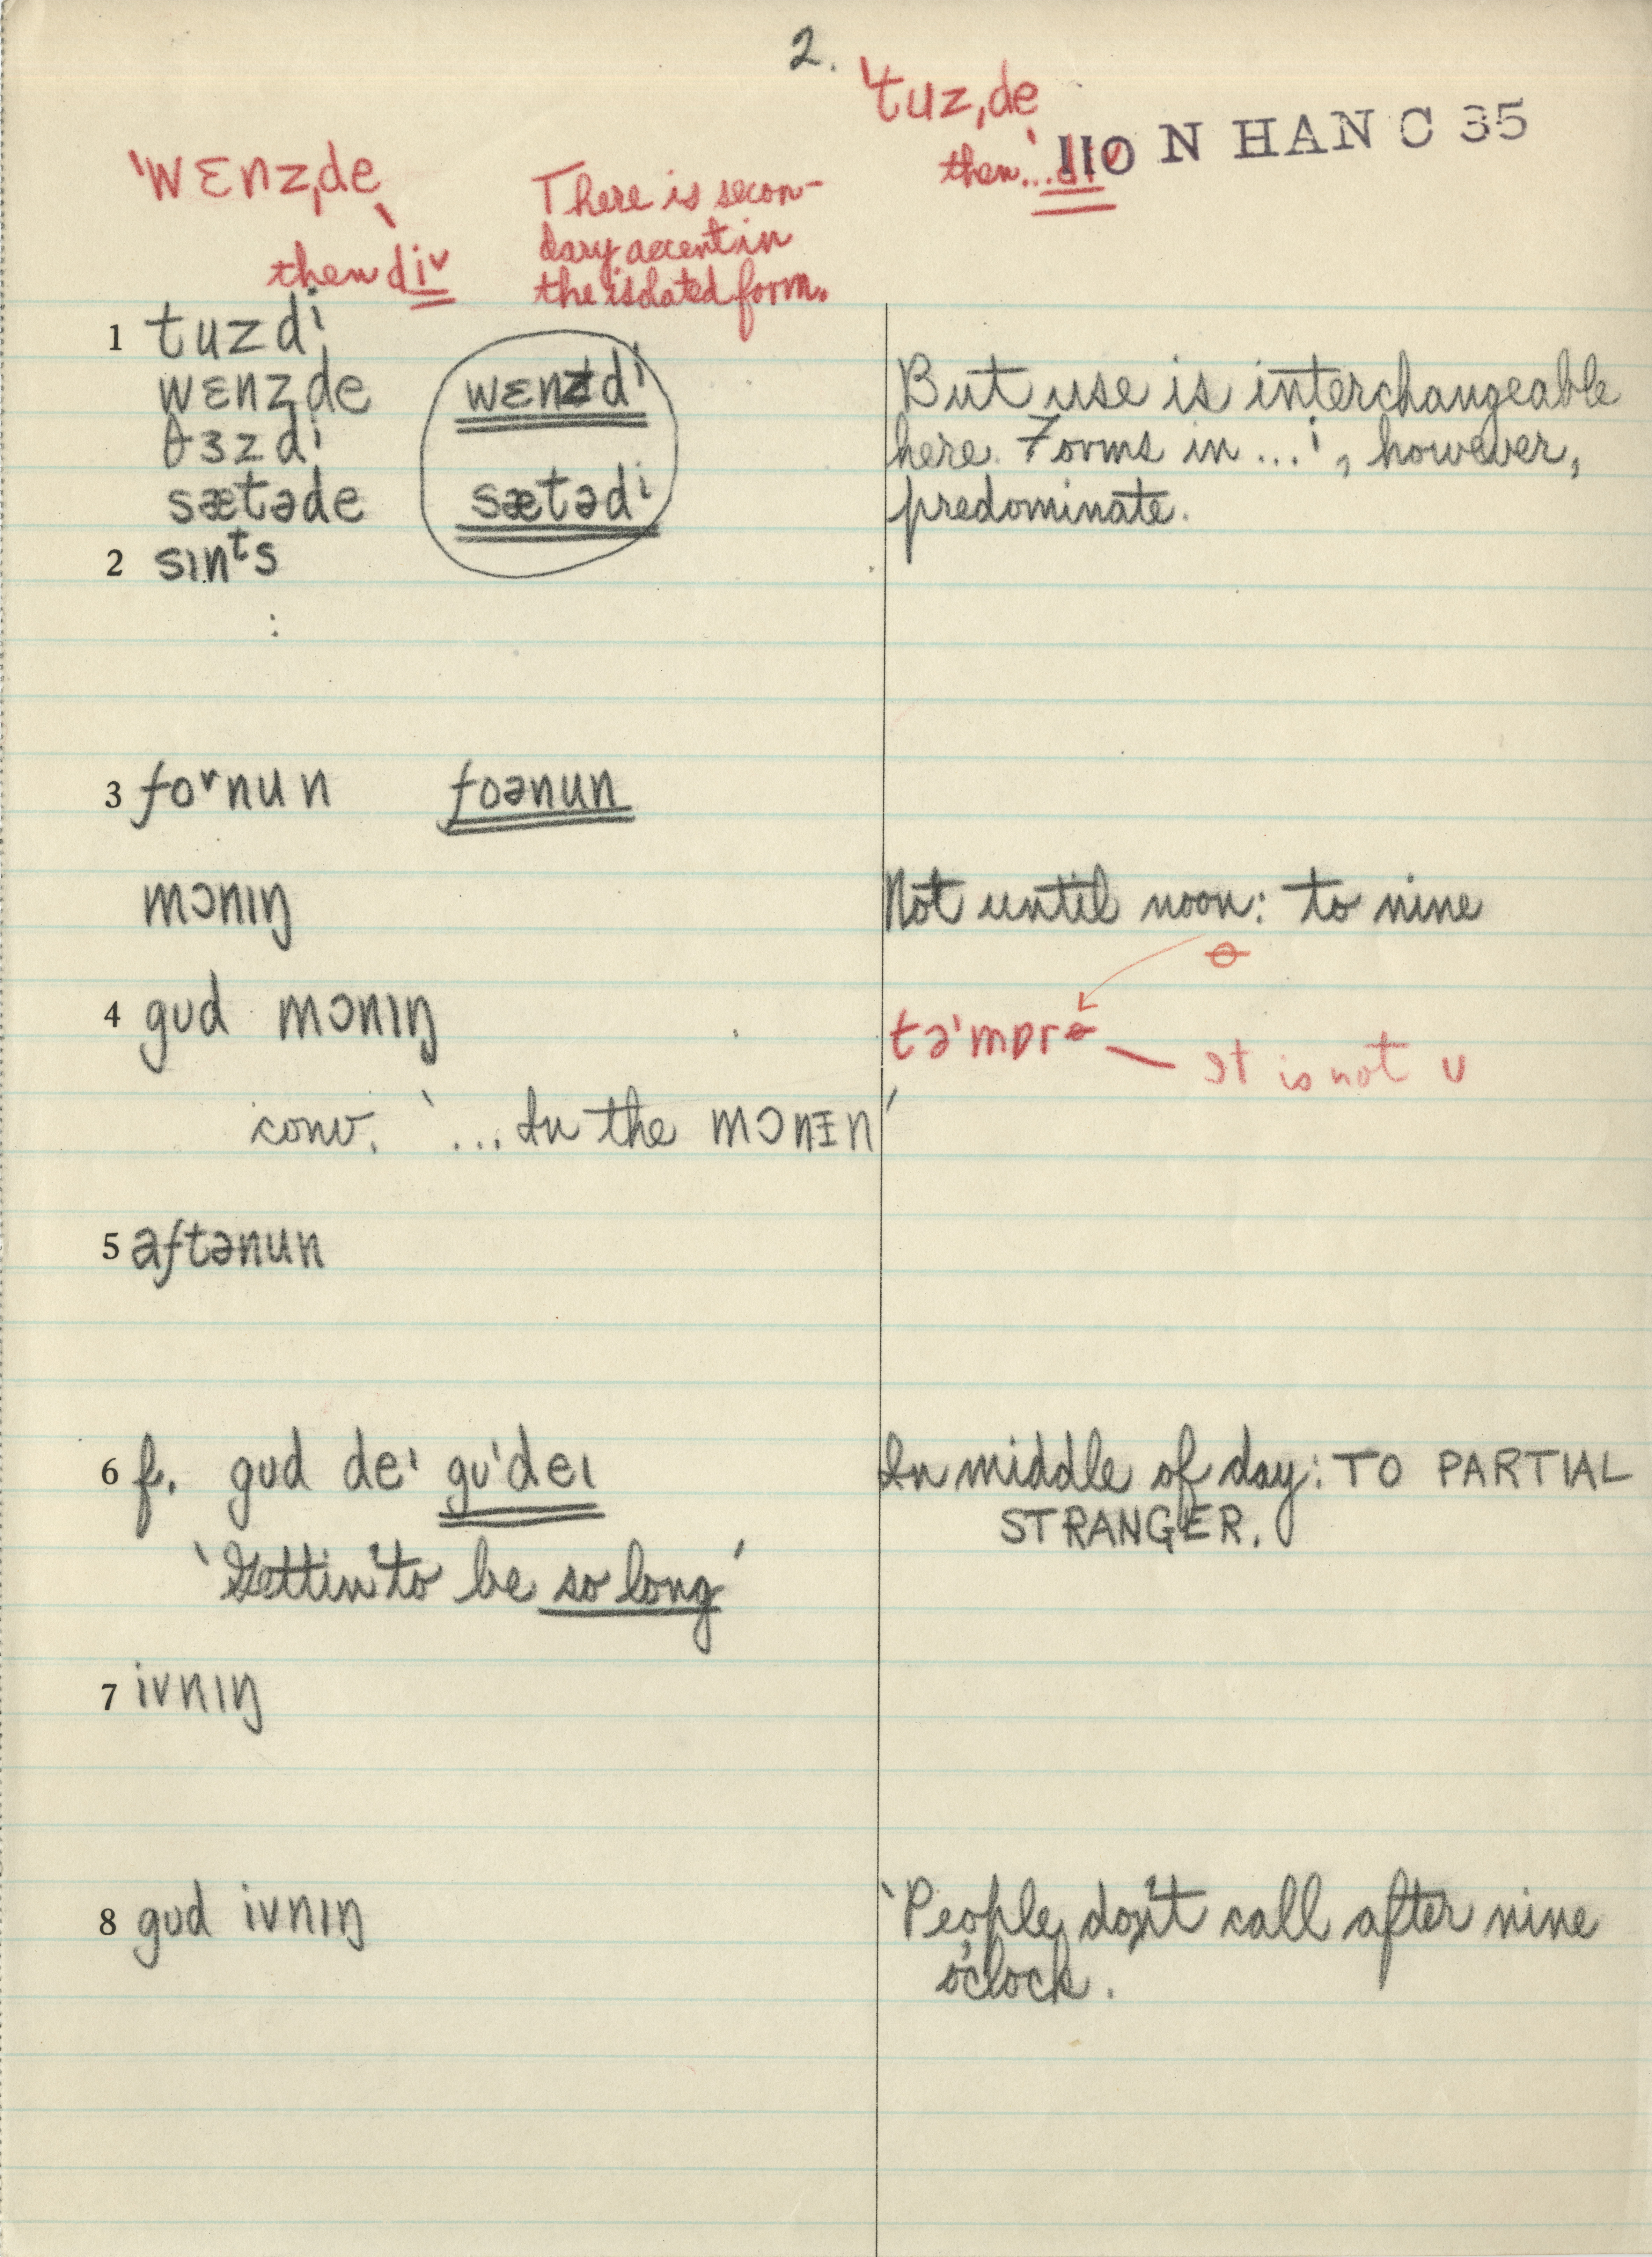 2.
ˈtuzˌde
110 N HAN C 35
then ...
ˈwɛnzˌde
There is secon-
dary accent in
the isolated form.
then di˅
1 tuzdi
wɛnzde wɛnzdi But use is interchangeable
θɜzdi here. Forms in ...i, however,
sætəde sætədi predominate.
2 sɪnᵗs
:
3 fo˅nun foənun
mɔnɪŋ Not until noon: to nine
ɵ
4 gʊd mɔnɪŋ təˈmɒrɵ — It is not ʊ
conv. '... In the mɔnɪn'
5 aftənun
6 f. gʊd deɪ gʊˈdeɪ In middle of day: TO PARTIAL
STRANGER.
'Gettin' to be so long'
7 ivnɪŋ
8 gʊd ivnɪŋ 'People don't call after nine
o'clock.